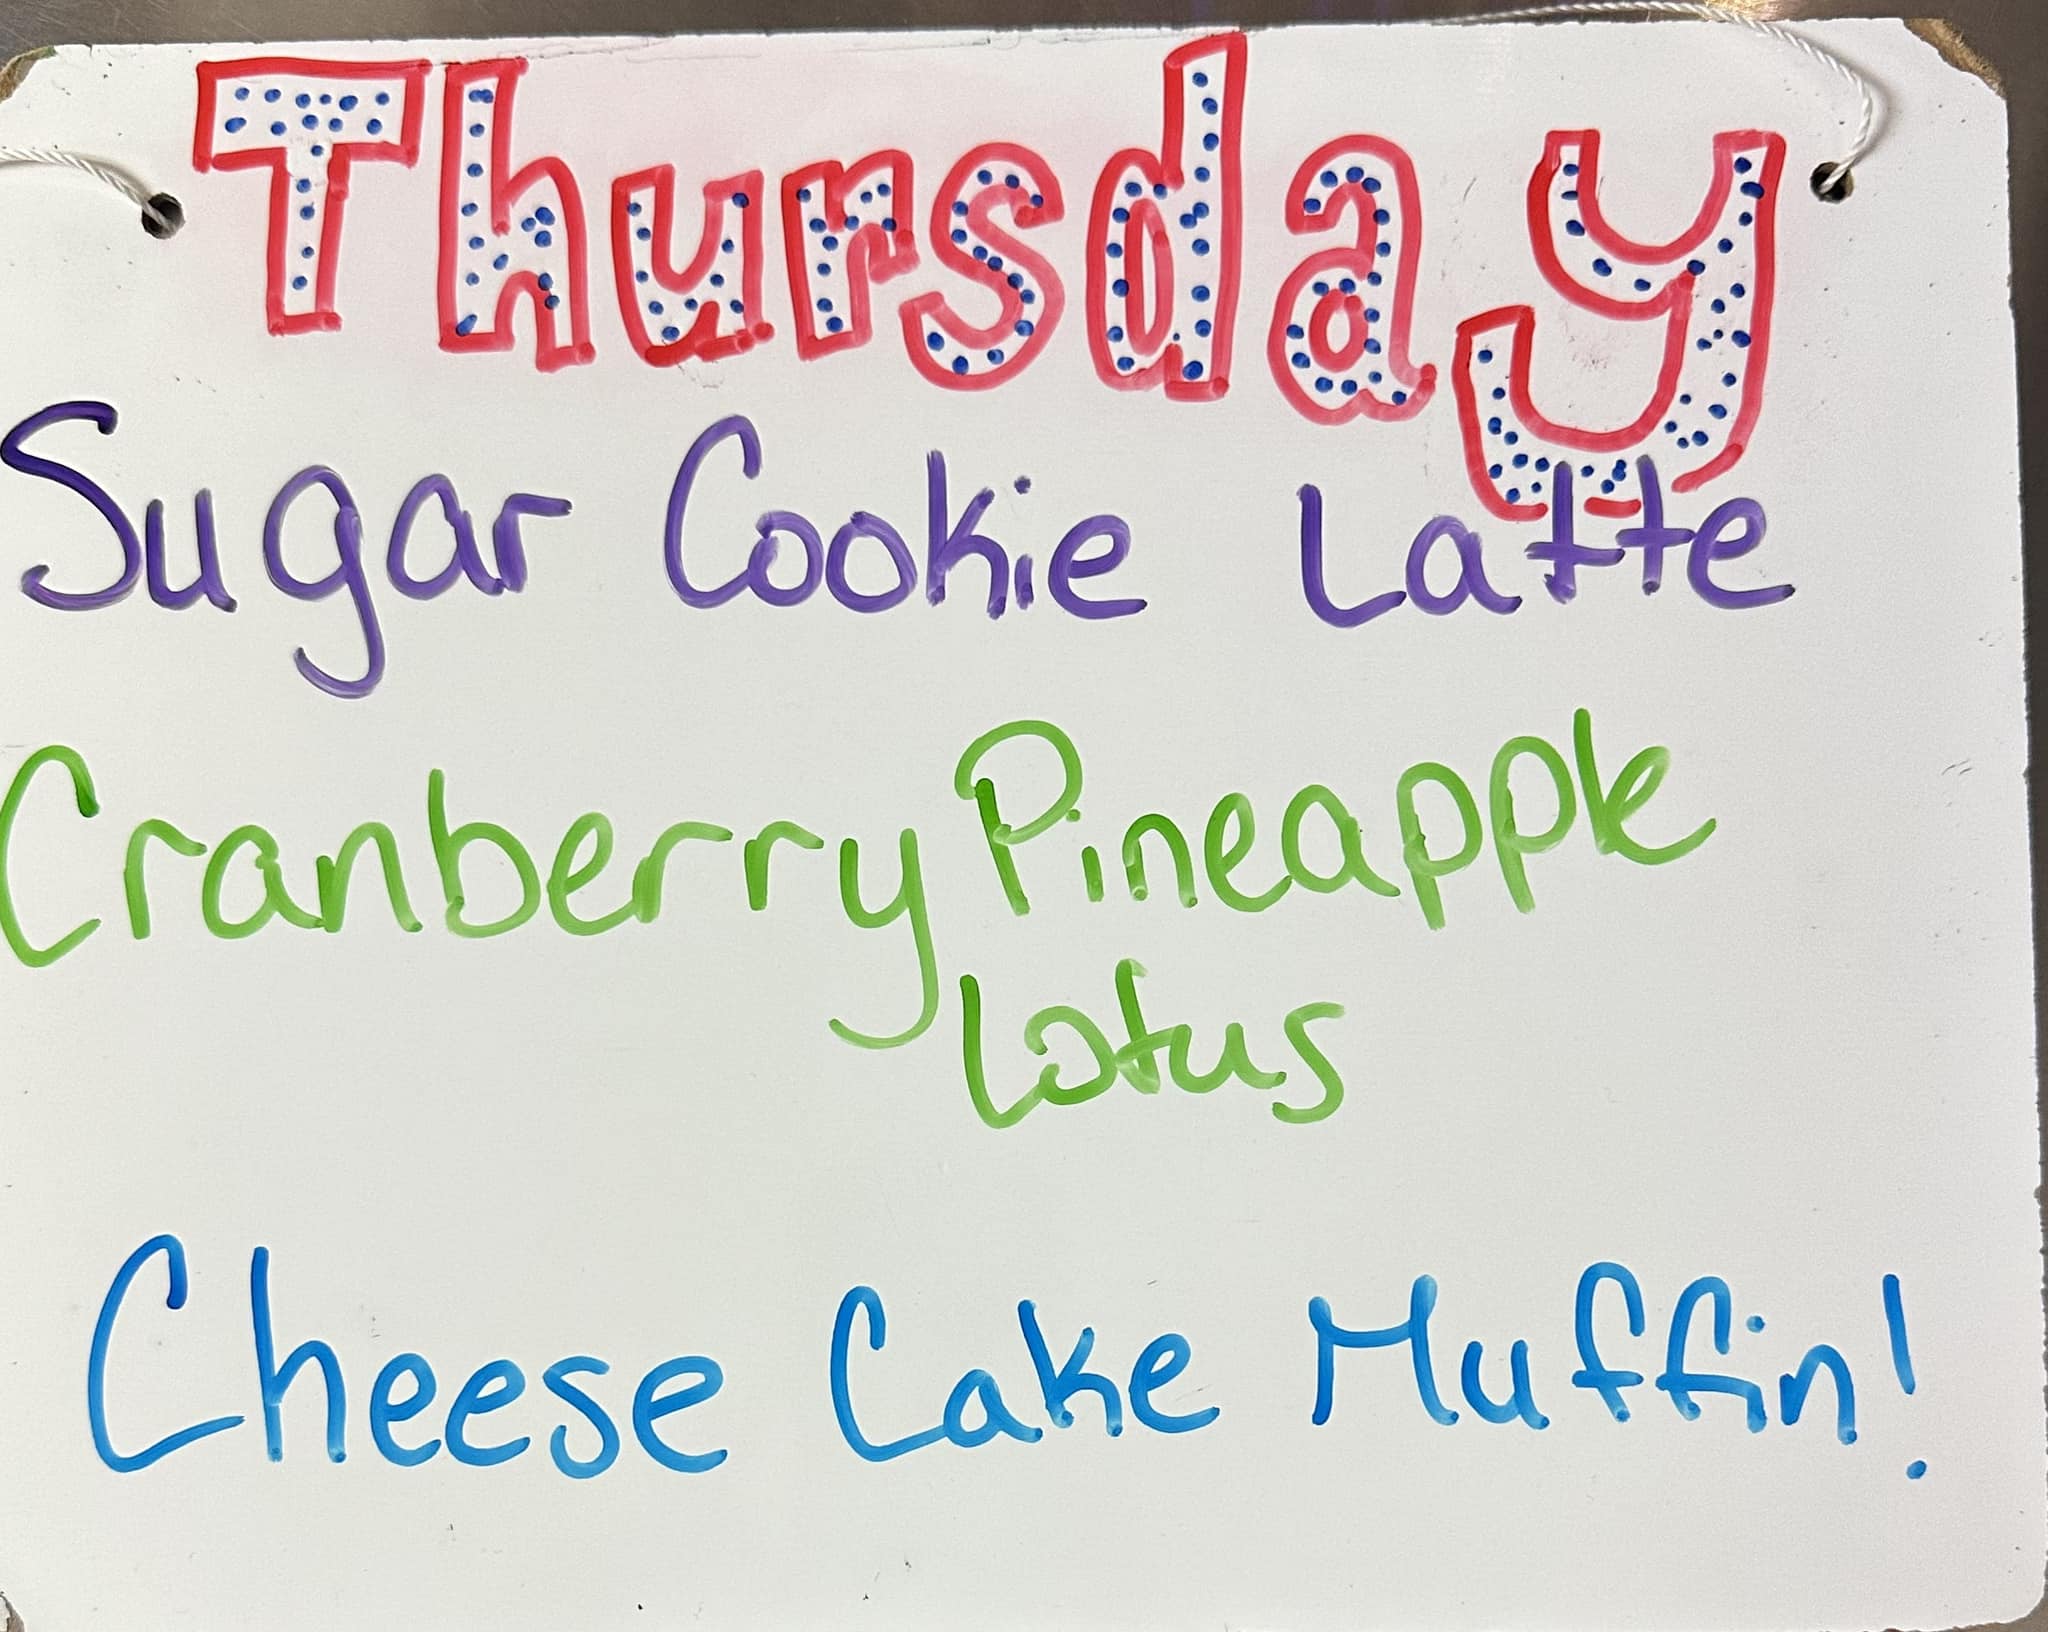 Thursday
Sugar Cookie Latte
Cranberry Pineapple
Lotus
Cheese Cake Muffin!